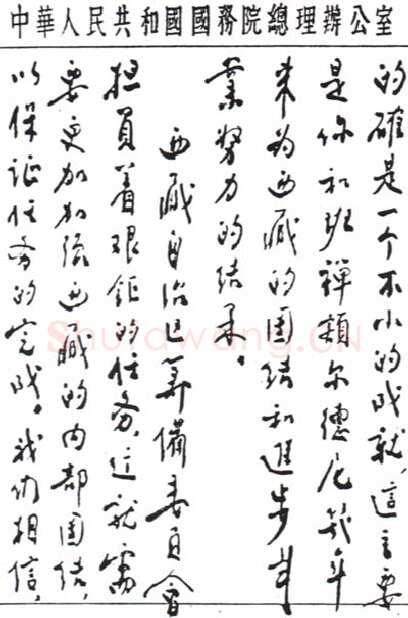 中華人民共和國國務院總理辦公室
的確是一个不小的成就，這主要
是你和班禪額尔德尼幾年
来为西藏的团结和進步
業努力的结果。
西藏自治区筹備委員会
担負着艰鉅的任务，这就需
要更加加强西藏的内部团结，
以保证任务的完成。我们相信，
Shufawang.CN